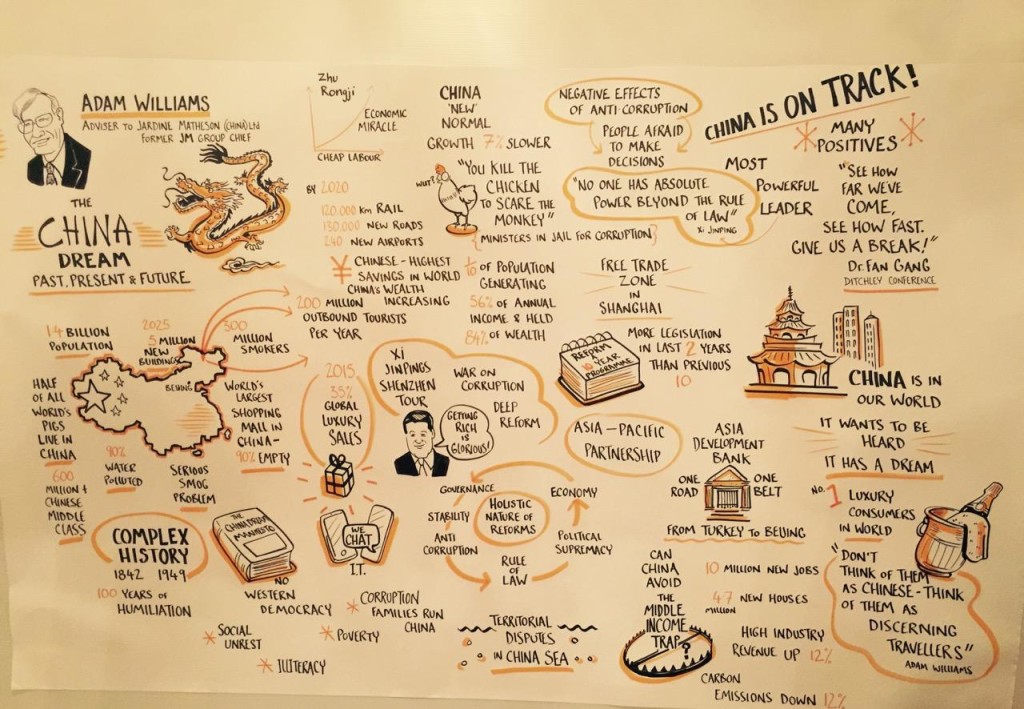 ADAM WILLIAMS
ADVISER TO JARDINE MATHESON (CHINA) Ltd
FORMER JM GROUP CHIEF
THE
CHINA
DREAM
PAST, PRESENT & FUTURE
Zhu
Rongji
ECONOMIC
MIRACLE
CHEAP LABOUR
BY 2020
120.000 km RAIL
130,000 NEW ROADS
240 NEW AIRPORTS
¥ CHINESE - HIGHEST
SAVINGS IN WORLD
CHINA'S WEALTH
INCREASING
200 MILLION
OUTBOUND TOURISTS
PER YEAR
CHINA
'NEW'
NORMAL
GROWTH 7% SLOWER
WUT?
"YOU KILL THE
CHICKEN
TO SCARE THE
MONKEY"
MINISTERS IN JAIL FOR CORRUPTION
OF POPULATION
GENERATING
56% OF ANNUAL
INCOME & HELD
84% OF WEALTH
NEGATIVE EFFECTS
OF ANTI-CORRUPTION
PEOPLE AFRAID
TO MAKE
DECISIONS
"NO ONE HAS ABSOLUTE
POWER BEYOND THE RULE
OF LAW"
XI JINPING
MOST
POWERFUL
LEADER
CHINA IS ON TRACK!
MANY
POSITIVES
"SEE HOW
FAR WE'VE
COME,
SEE HOW FAST.
GIVE US A BREAK!"
Dr. FAN GANG
DITCHLEY CONFERENCE
FREE TRADE
ZONE
IN
SHANGHAI
REFORM
YEAR
PROGRAMME
MORE LEGISLATION
IN LAST 2 YEARS
THAN PREVIOUS
10
CHINA IS IN
OUR WORLD
IT WANTS TO BE
HEARD
IT HAS A DREAM
1.4 BILLION
POPULATION
2025
5 MILLION
NEW
BUILDINGS
300
MILLION
SMOKERS
BEIJING
HALF
OF ALL
WORLD'S
PIGS
LIVE IN
CHINA
600
MILLION +
CHINESE
MIDDLE
CLASS
90%
WATER
POLLUTED
SERIOUS
SMOG
PROBLEM
WORLD'S
LARGEST
SHOPPING
MALL IN
CHINA-
90% EMPTY
2015
35%
GLOBAL
LUXURY
SALES
XI
JINPINGS
SHENZHEN
TOUR
WAR ON
CORRUPTION
DEEP
REFORM
GETTING
RICH
IS
GLORIOUS!
ASIA-PACIFIC
PARTNERSHIP
ASIA
DEVELOPMENT
BANK
ONE
ROAD
ONE
BELT
FROM TURKEY TO BEIJING
NO. 1 LUXURY
CONSUMERS
IN WORLD
"DON'T
THINK OF THEM
AS CHINESE - THINK
OF THEM AS
DISCERNING
TRAVELLERS"
ADAM WILLIAMS
COMPLEX
HISTORY
1842 1949
100 YEARS OF
HUMILIATION
THE CHINA DREAM
MANIFESTO
NO
WESTERN
DEMOCRACY
WE
CHAT
I.T.
* SOCIAL
UNREST
* POVERTY
* ILLITERACY
* CORRUPTION
FAMILIES RUN
CHINA
GOVERNANCE
STABILITY
ANTI
CORRUPTION
RULE
OF
LAW
HOLISTIC
NATURE OF
REFORMS
ECONOMY
POLITICAL
SUPREMACY
TERRITORIAL
DISPUTES
IN CHINA SEA
CAN
CHINA
AVOID
THE
MIDDLE
INCOME
TRAP
?
10 MILLION NEW JOBS
4.7 NEW HOUSES
MILLION
HIGH INDUSTRY
REVENUE UP 12%
CARBON
EMISSIONS DOWN 12%